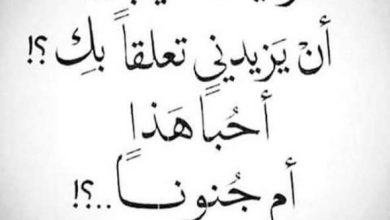 أنْ يَزيدني تعلقاً بكِ ؟!
أحُباً هَذا
أم جُنونـــاً ..؟!